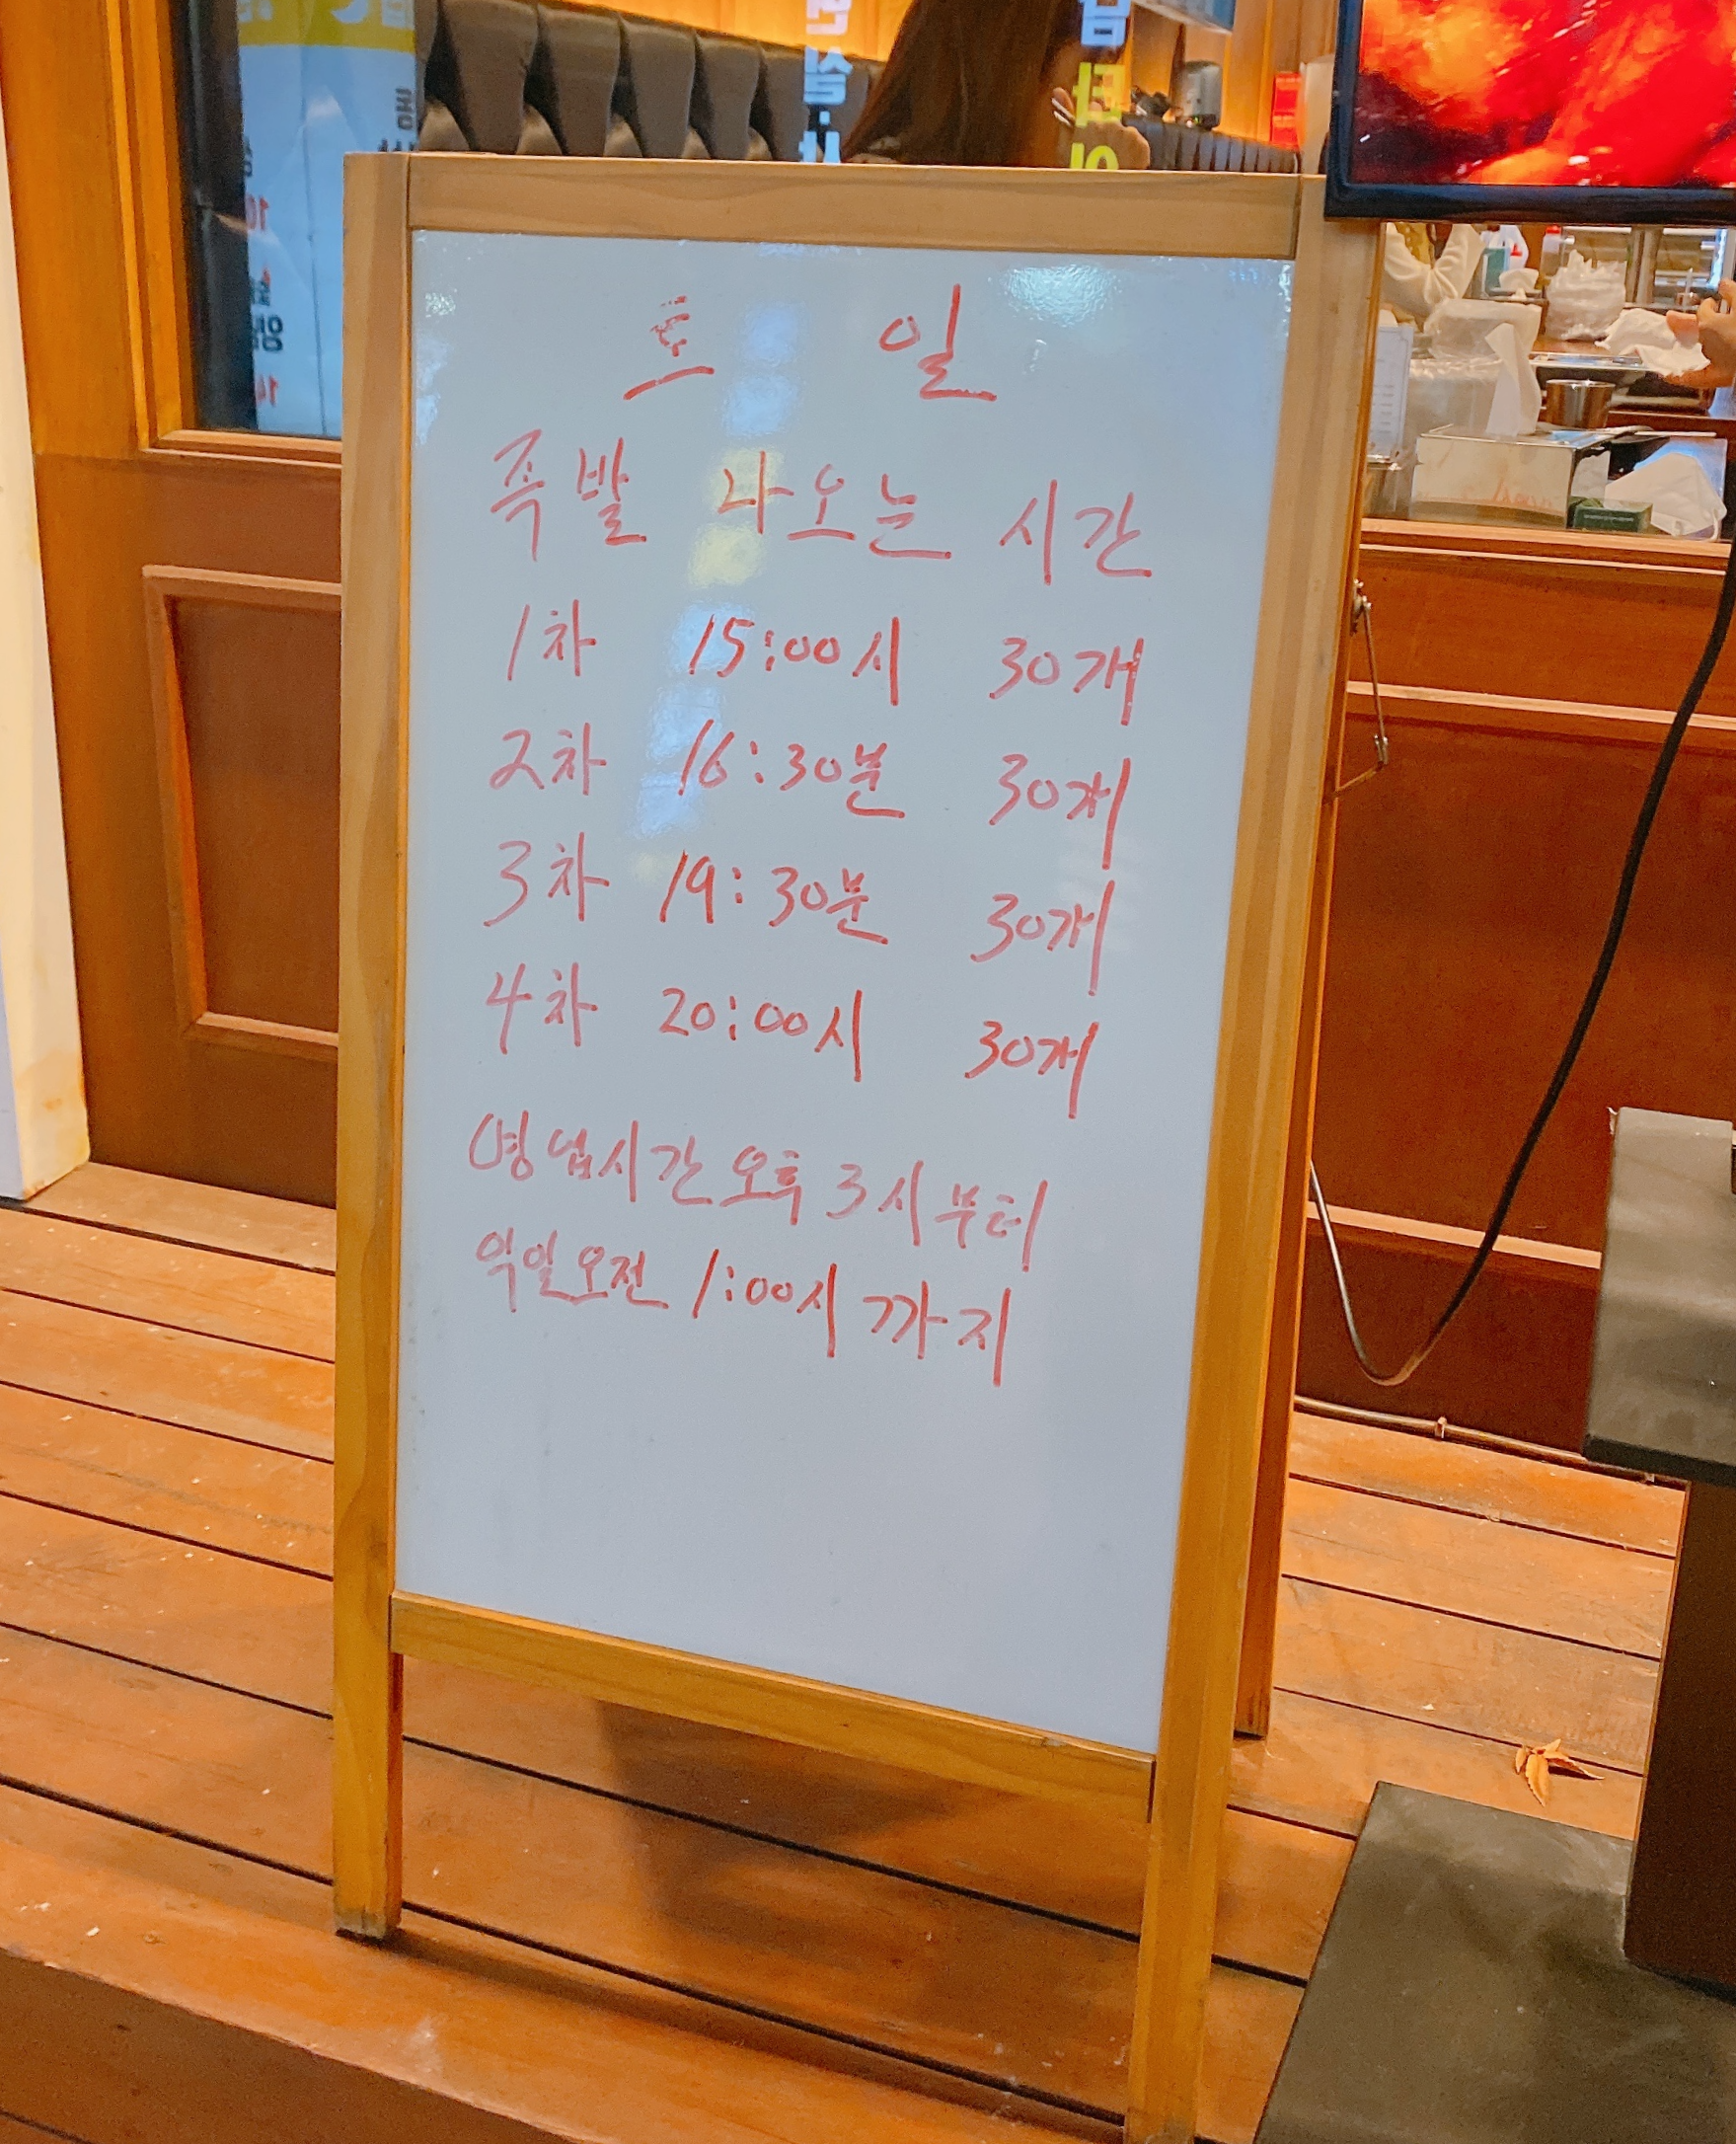 토 일
족발 나오는 시간
1차 15:00시 30개
2차 16:30분 30개
3차 19:30분 30개
4차 20:00시 30개
영업시간 오후 3시부터
익일오전 1:00시 까지